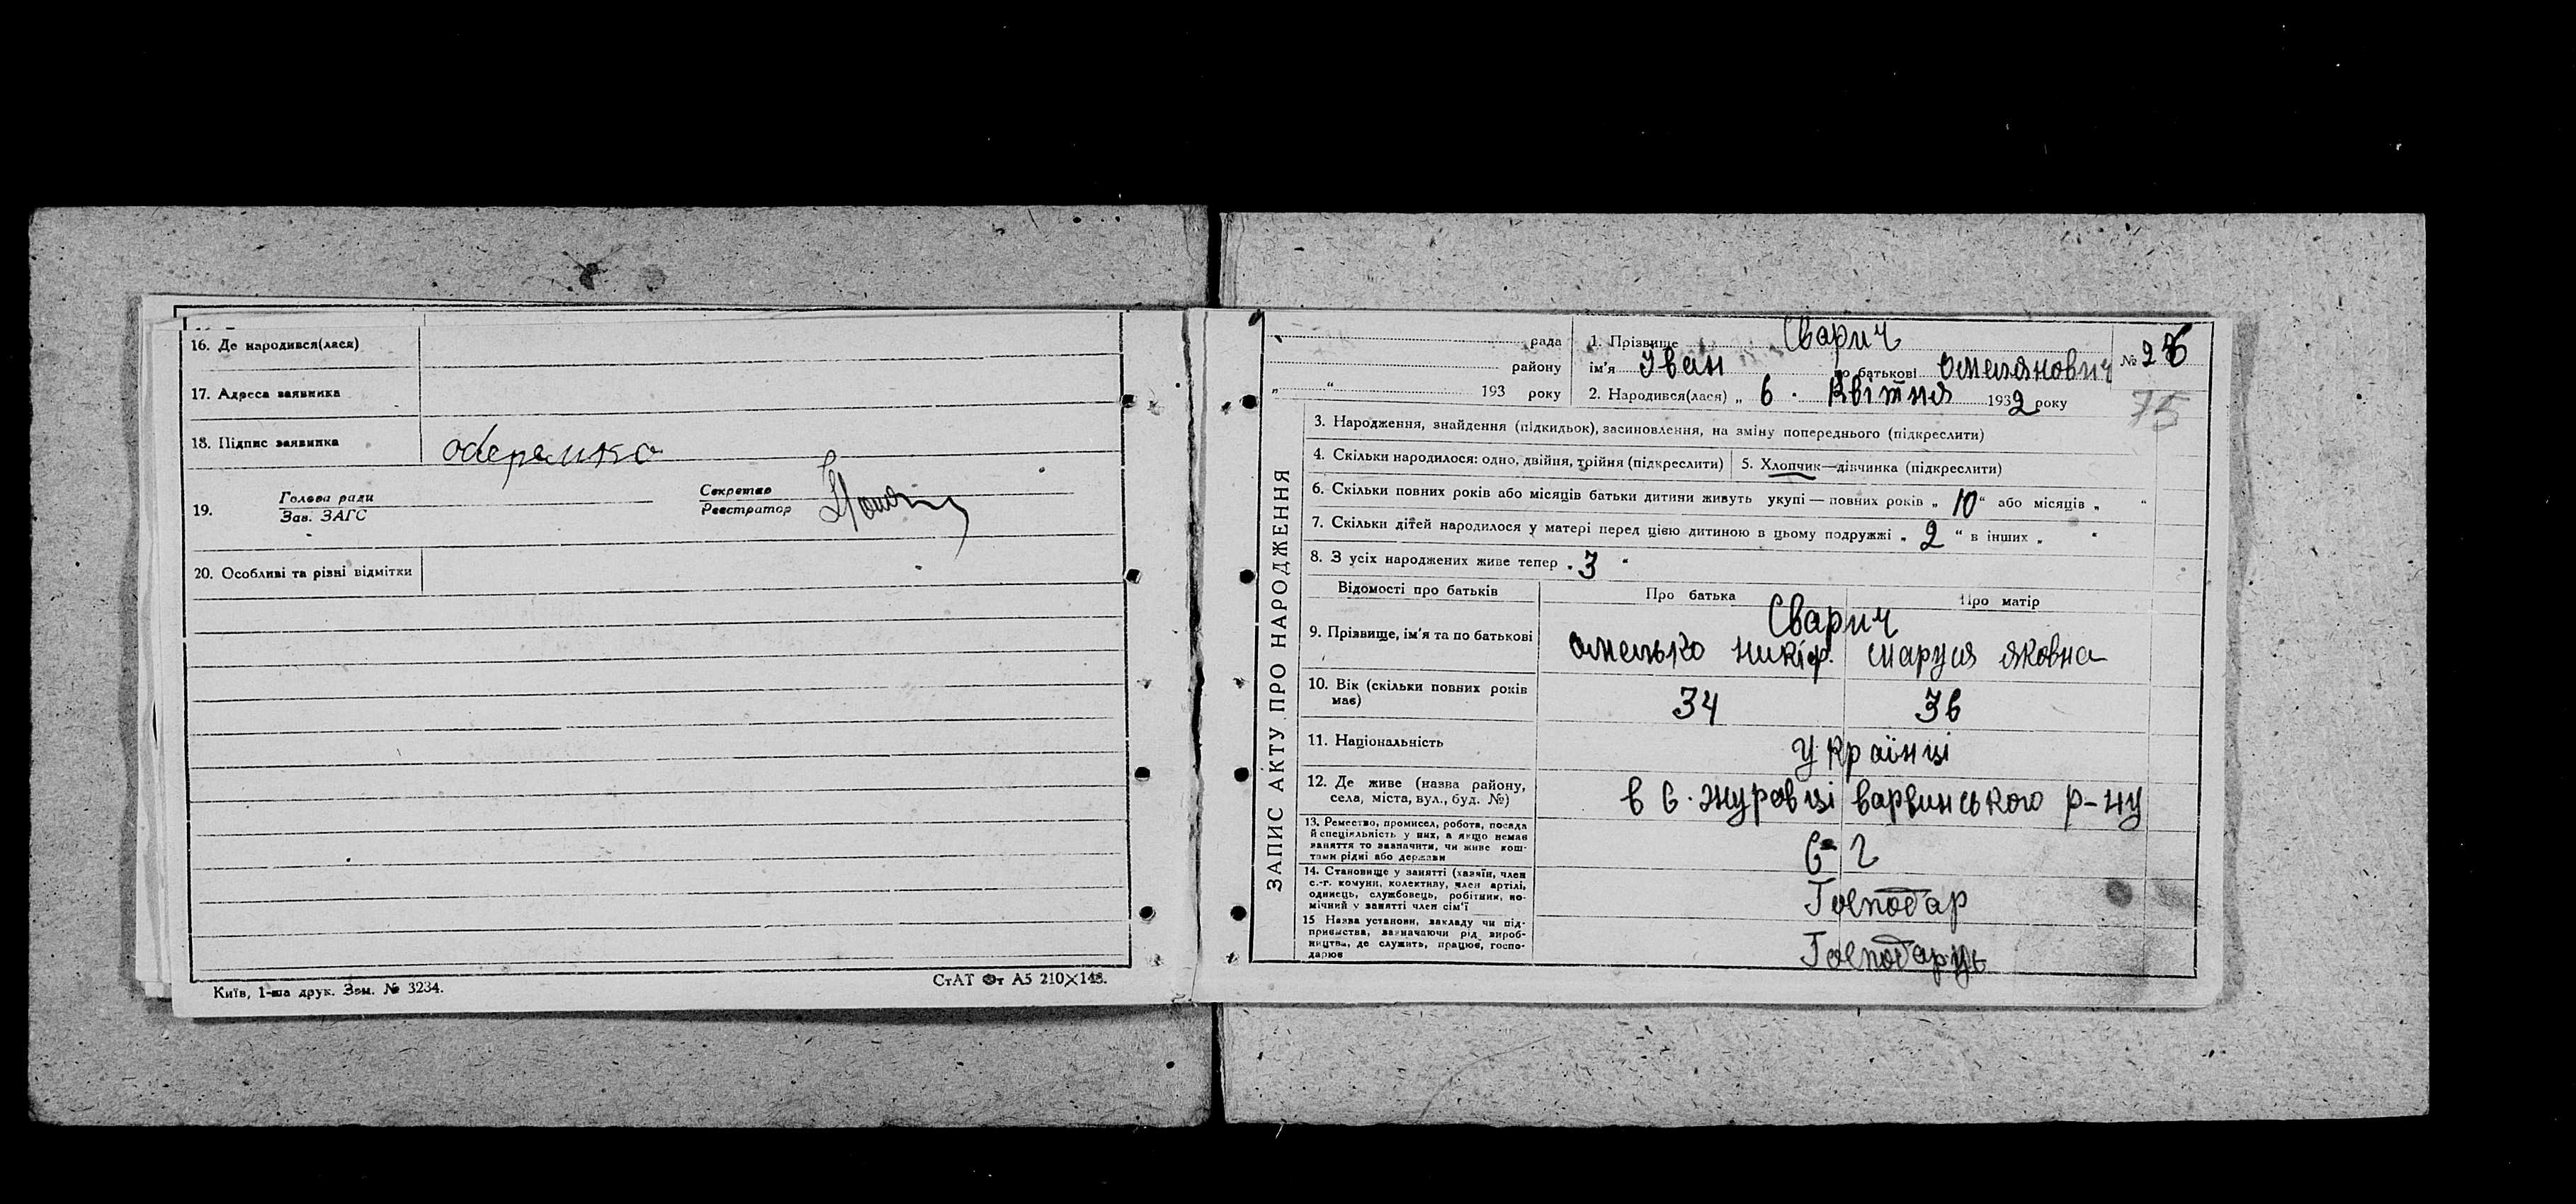 16. Де народився(лася)
17. Адреса заявника
18. Підпис заявника
19. Голова ради
Зав. ЗАГС
Секретар
Реєстратор
20. Особливі та різні відмітки
Київ, 1-ша друк. Зам. № 3234.
СтАТ Фт А5 210×148.
ЗАПИС АКТУ ПРО НАРОДЖЕННЯ
рада
району
„ “ 193 року
1. Прізвище Сварич
ім'я Іван по батькові Омелянович
№ 26
2. Народився(лася) „ 6 . Квітня 1932 року
75
3. Народження, знайдення (підкидьок), засиновлення, на зміну попереднього (підкреслити)
4. Скільки народилося: одно, двійня, трійня (підкреслити) 5. Хлопчик—дівчинка (підкреслити)
6. Скільки повних років або місяців батьки дитини живуть укупі — повних років „ 10 “ або місяців „ “
7. Скільки дітей народилося у матері перед цією дитиною в цьому подружжі „ 2 “ в інших „ “
8. З усіх народжених живе тепер „ 3 “
Відомості про батьків Про батька Про матір
9. Прізвище, ім'я та по батькові
Сварич
Омелько Никіф. Маруся Яковна
10. Вік (скільки повних років має)
34 36
11. Національність Українці
12. Де живе (назва району,
села, міста, вул., буд. №)
в с. Журавці Варвинського р-ну
13. Ремество, промисел, робота, посада
й спеціяльність у них, а якщо немає
заняття то зазначити, чи живе кош-
тами рідні або держави
С-Г
14. Становище у занятті (хазяїн, член
с.-г. комуни, колективу, член артілі,
одинець, службовець, робітник, по-
мічний у занятті член сім'ї
Господар
15 Назва установи, закладу чи під-
приємства, зазначаючи рід вироб-
ництва, де служить, працює, госпо-
дарює
Господарць